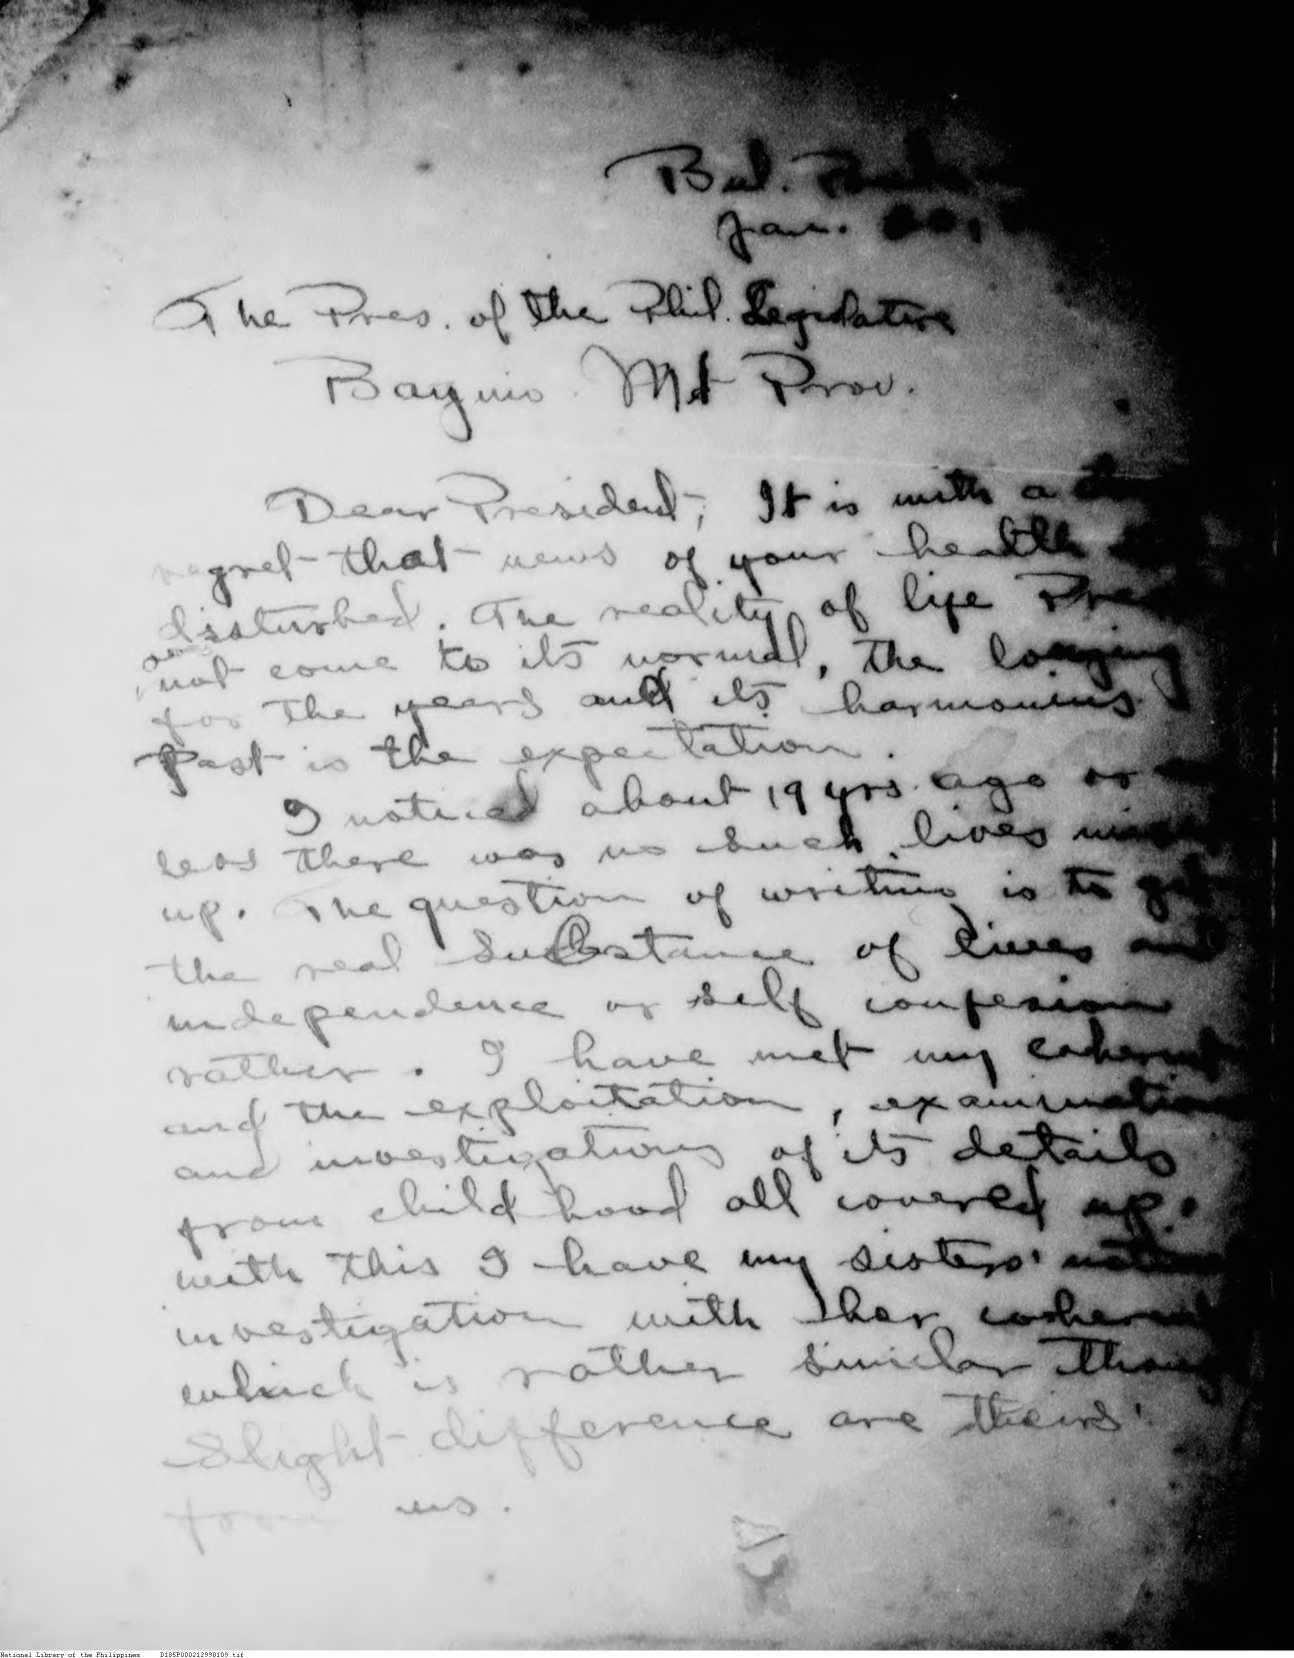 Bul.
Jan.
The Pres. of the Phil. Legislative
Baguio Mt Prov.
Dear President; It is with a
regret that news of your health
disturbed. The reality of life
not come to its normal, the longing
for the years and its harmonius
Past is the expectation.
I noticed about 19 yrs. ago or
less there was no such lives
up. The question of writing is to get
the real substance of lives and
independence or self confesion
rather. I have met my
and the exploitation, examination
and investigations of its details
from child hood all covered up.
with this I have my sisters'
investigation with her
which is rather similar though
Slight difference are theirs'
from us.
National Library of the Philippines D185P000212998109.tif